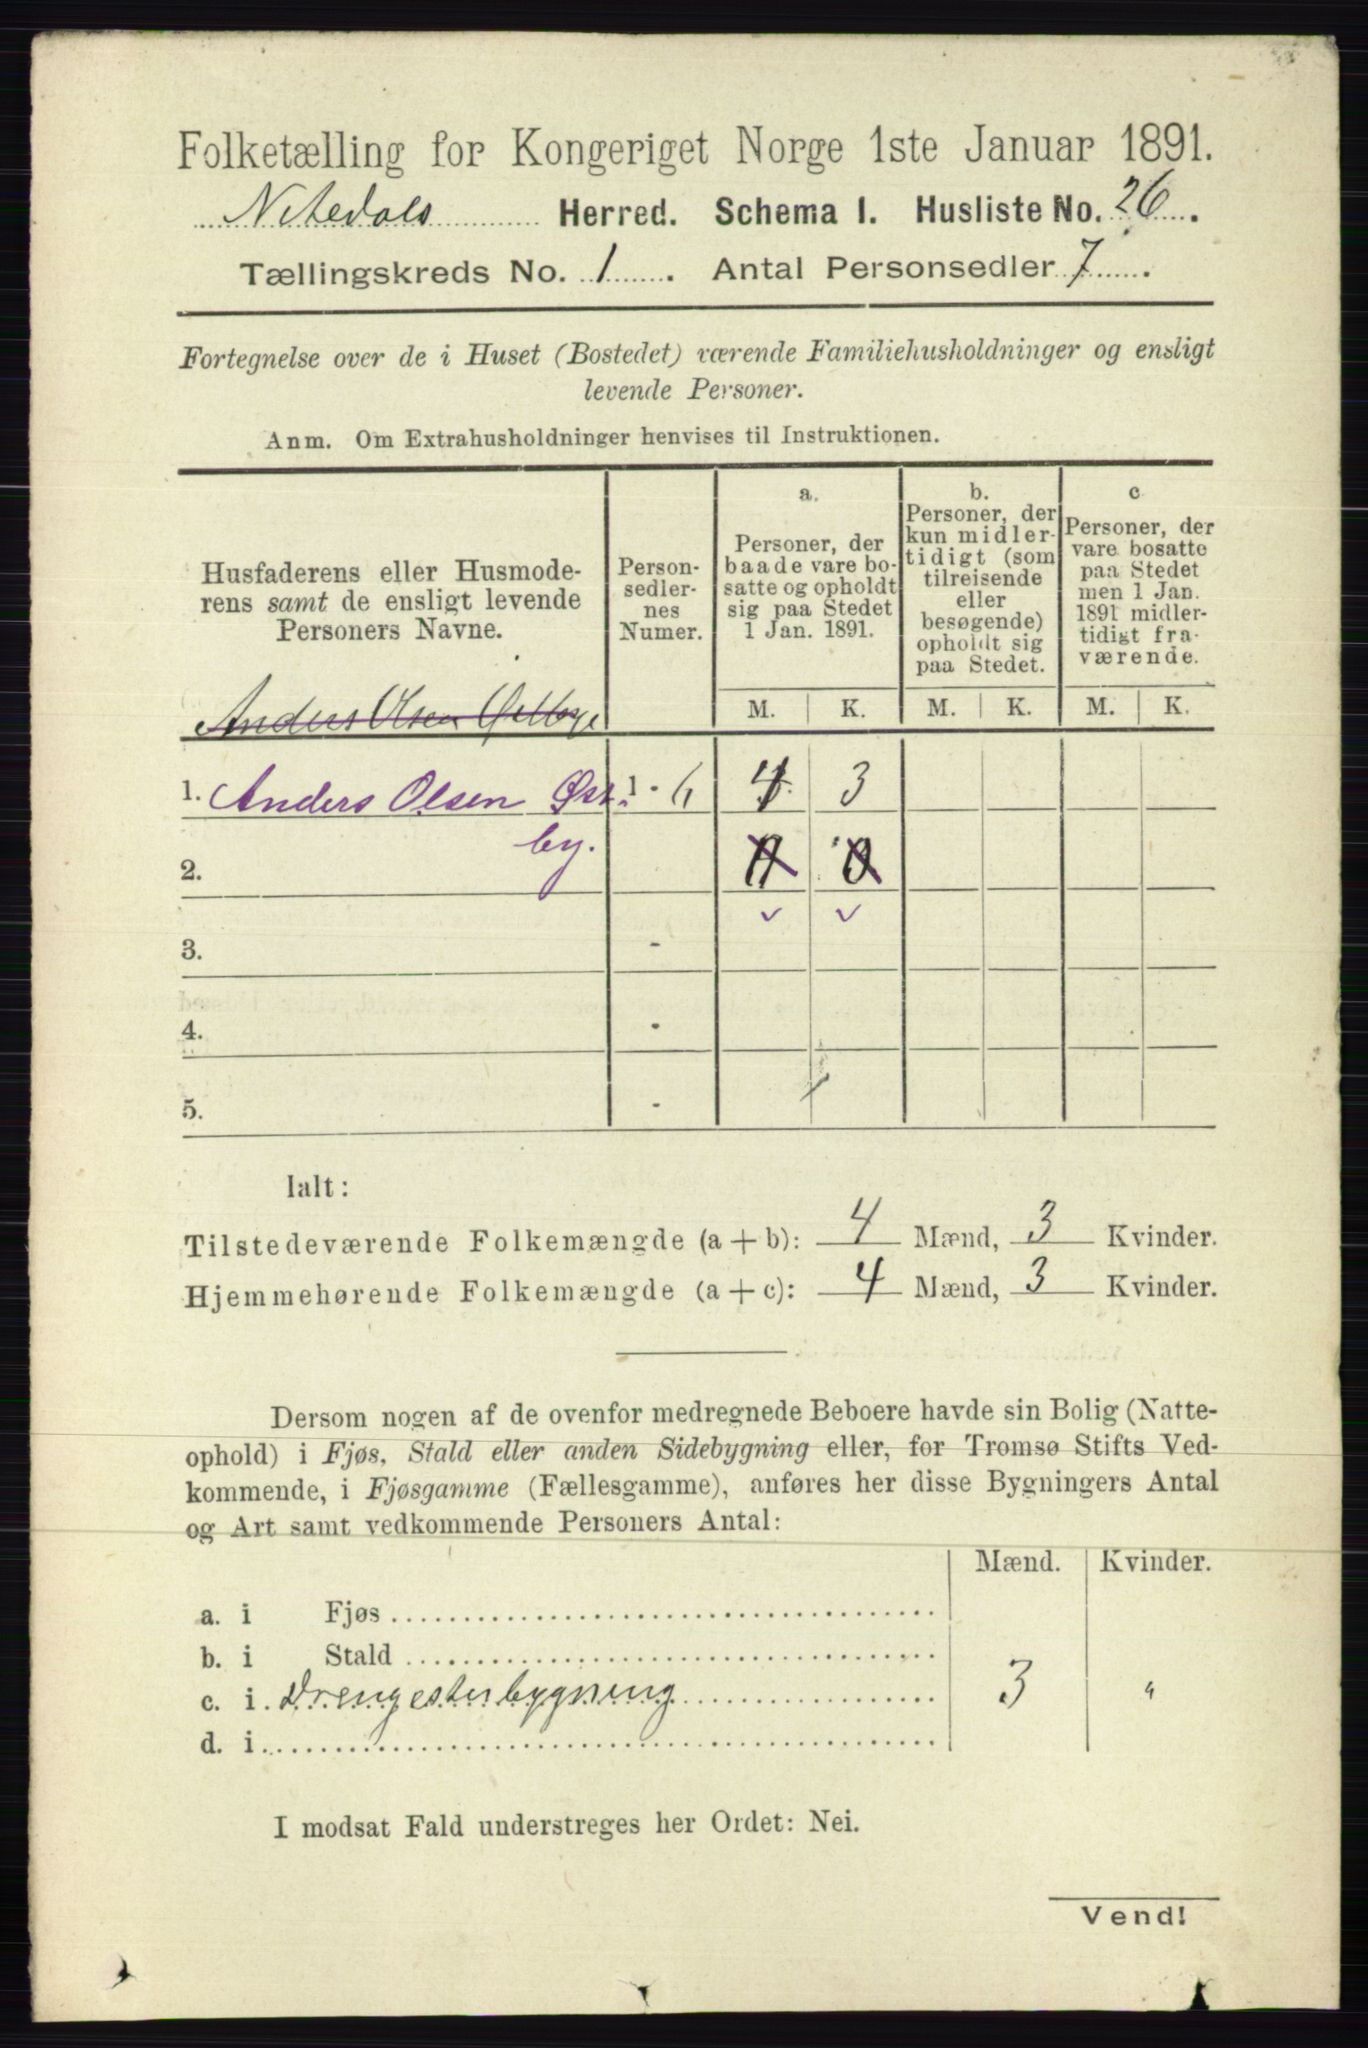 Folketælling for Kongeriget Norge 1ste Januar 1891.
Nitedals Herred. Schema I. Husliste No. 26.
Tællingskreds No. 1. Antal Personsedler 7.
Fortegnelse over de i Huset (Bostedet) værende Familiehusholdninger og ensligt
levende Personer.
Anm. Om Extrahusholdninger henvises til Instruktionen.
Husfaderens eller Husmode-
rens samt de ensligt levende
Personers Navne.
Person-
sedler-
nes
Numer.
a.
Personer, der
baade vare bo-
satte og opholdt
sig paa Stedet
1 Jan. 1891.
b.
Personer, der
kun midler-
tidigt (som
tilreisende
eller
besøgende)
opholdt sig
paa Stedet.
c
Personer, der
vare bosatte
paa Stedet
men 1 Jan.
1891 midler-
tidigt fra-
værende.
M. K. M. K. M. K.
Anders Olsen
1. Anders Olsen Øst- 1 - 4 3
by.
2.
3. -
4. -
5. -
Ialt:
Tilstedeværende Folkemængde (a + b): 4 Mænd, 3 Kvinder.
Hjemmehørende Folkemængde (a + c): 4 Mænd, 3 Kvinder.
Dersom nogen af de ovenfor medregnede Beboere havde sin Bolig (Natte-
ophold) i Fjøs, Stald eller anden Sidebygning eller, for Tromsø Stifts Ved-
kommende, i Fjøsgamme (Fællesgamme), anføres her disse Bygningers Antal
og Art samt vedkommende Personers Antal:
Mænd. Kvinder.
a. i Fjøs
b. i Stald
c. i Drengestubygning 3 "
d. i
I modsat Fald understreges her Ordet: Nei.
Vend!